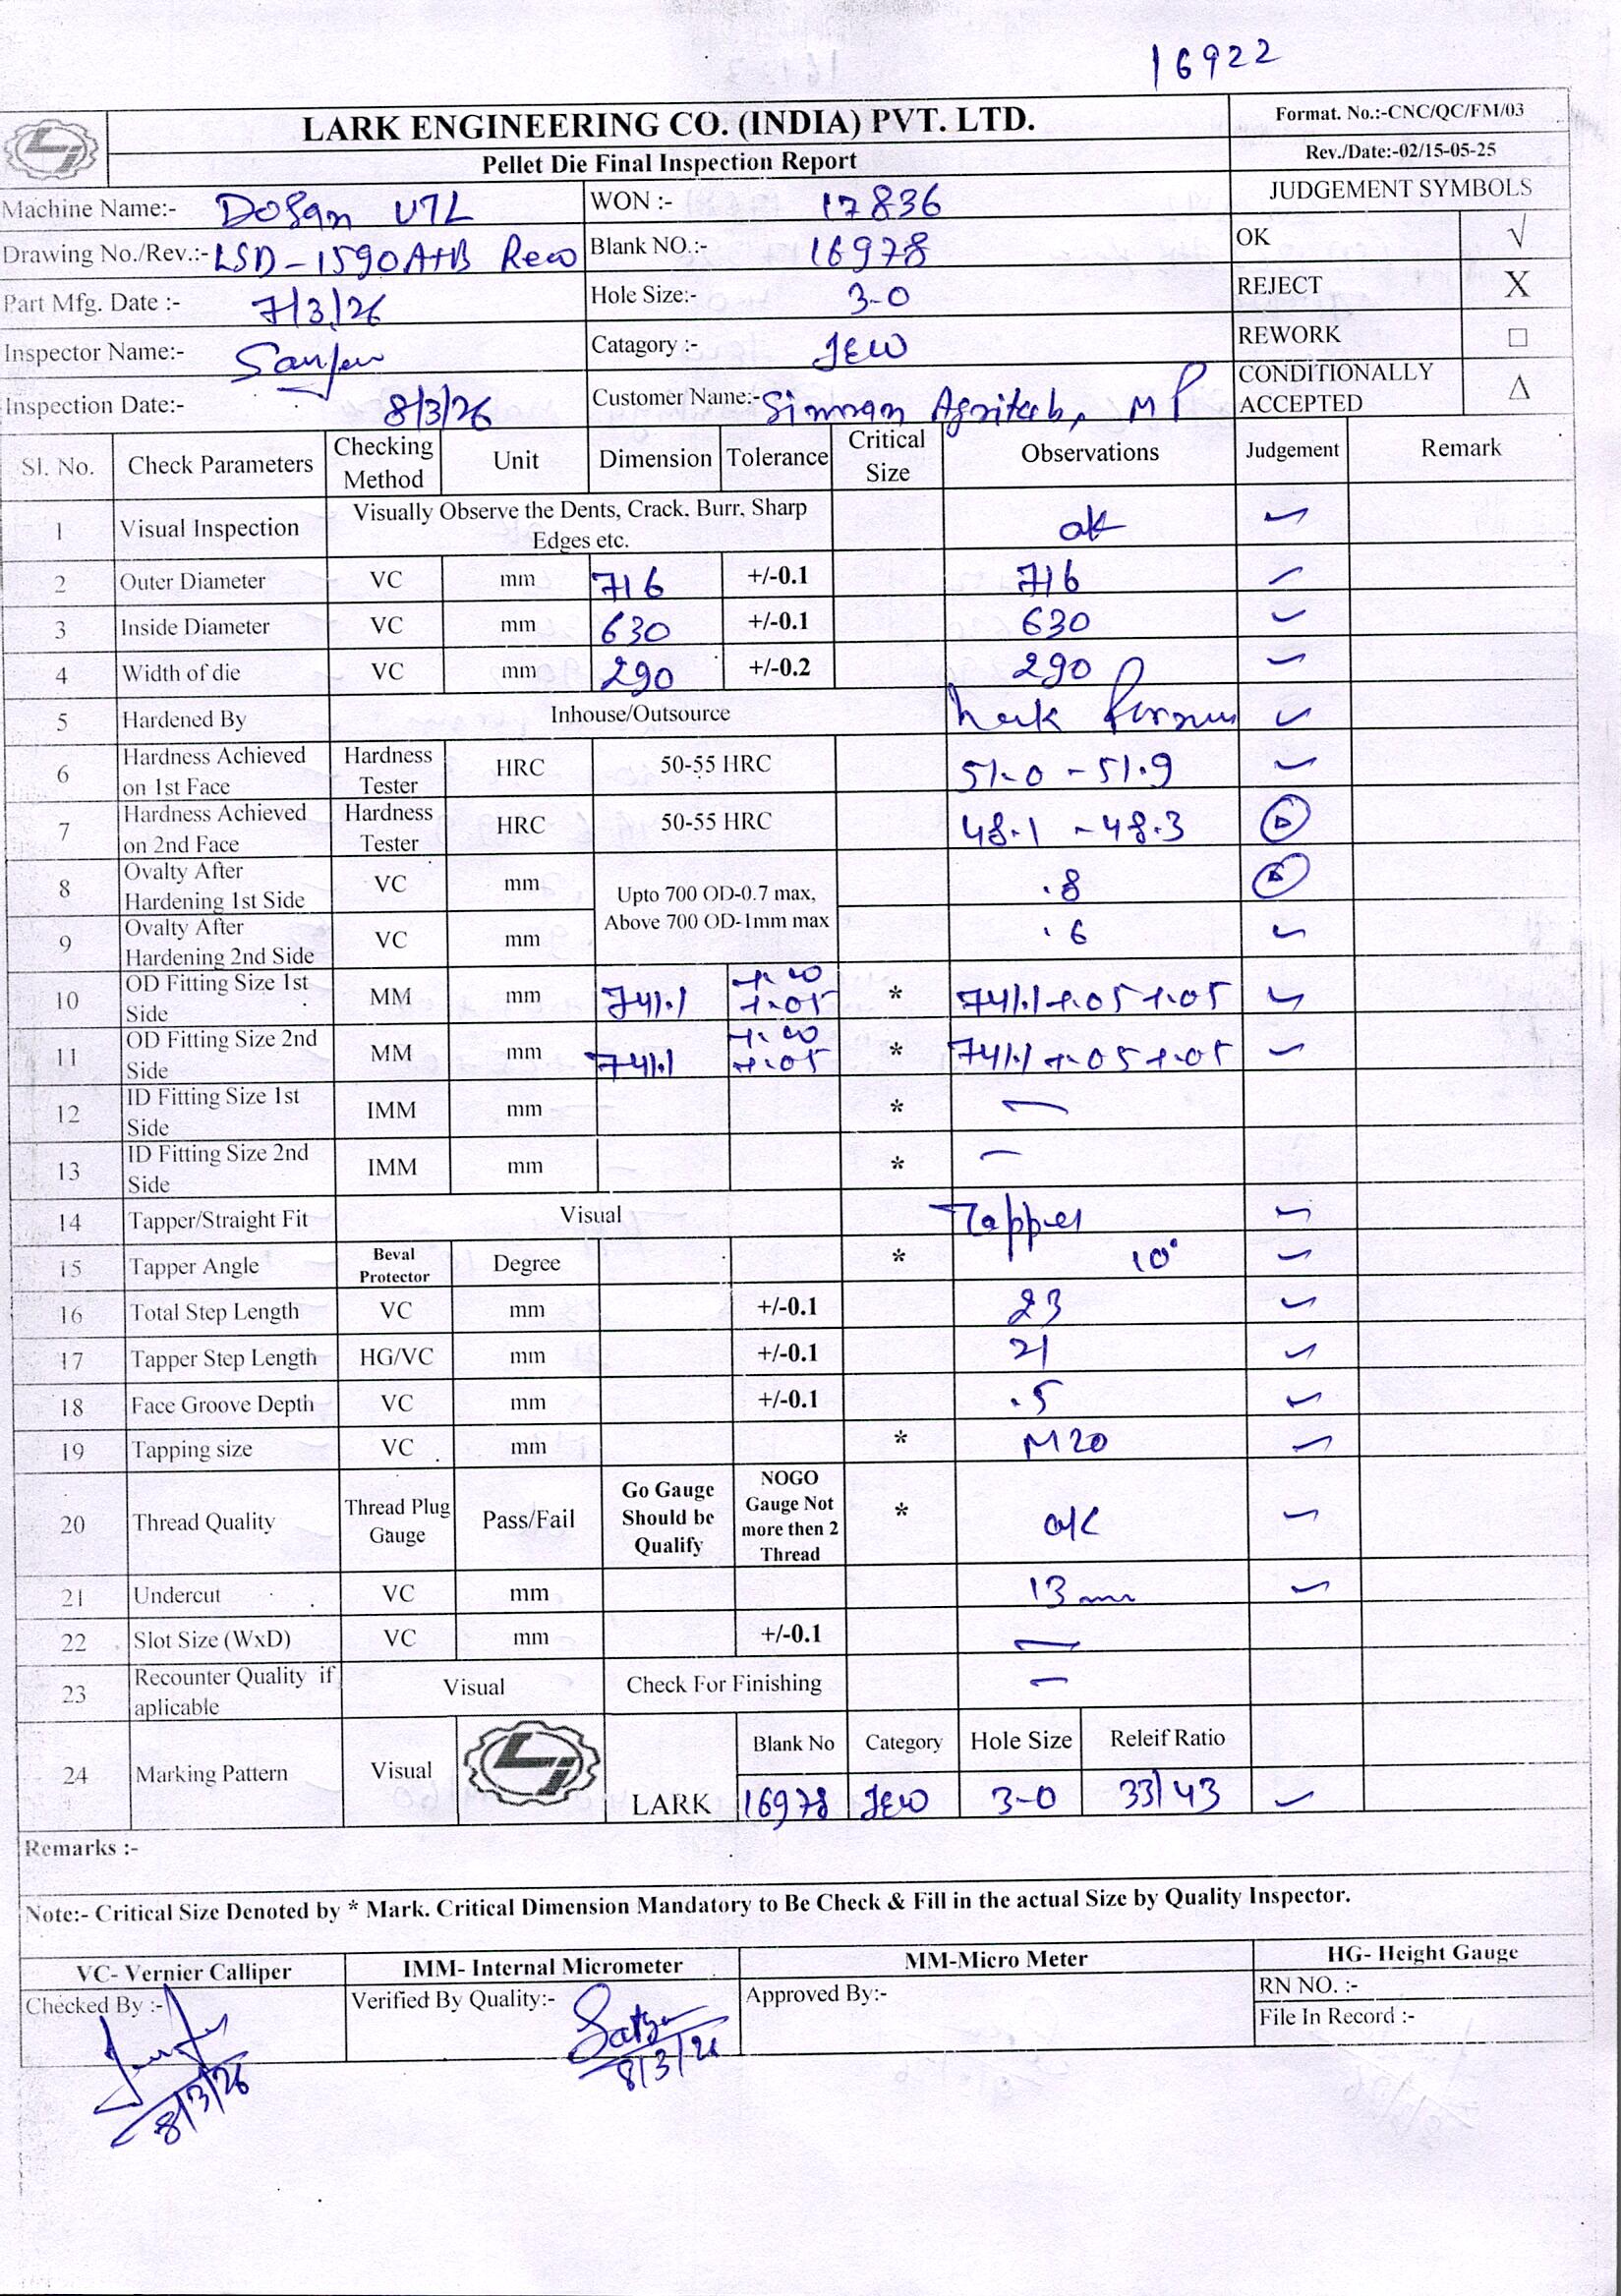 16922
LARK ENGINEERING CO. (INDIA) PVT. LTD.
Format. No.:-CNC/QC/FM/03
Pellet Die Final Inspection Report
Rev./Date:-02/15-05-25
Machine Name:- Dosan VTL WON :- 17836 JUDGEMENT SYMBOLS
Drawing No./Rev.:- LSD-1590A+B Rev0 Blank NO.:- 16978 OK √
Part Mfg. Date :- 7/3/26 Hole Size:- 3-0 REJECT X
Inspector Name:- Catagory :- JEW REWORK □
Inspection Date:- 8/3/26 Customer Name:- Simran Agritech, MP CONDITIONALLY ACCEPTED Δ
Sl. No. Check Parameters Checking Method Unit Dimension Tolerance Critical Size Observations Judgement Remark
1 Visual Inspection Visually Observe the Dents, Crack, Burr, Sharp Edges etc. ok ✓
2 Outer Diameter VC mm 716 +/-0.1 716 ✓
3 Inside Diameter VC mm 630 +/-0.1 630 ✓
4 Width of die VC mm 290 +/-0.2 290 ✓
5 Hardened By Inhouse/Outsource ✓
6 Hardness Achieved on 1st Face Hardness Tester HRC 50-55 HRC 51.0 - 51.9 ✓
7 Hardness Achieved on 2nd Face Hardness Tester HRC 50-55 HRC 48.1 - 48.3 Δ
8 Ovalty After Hardening 1st Side VC mm Upto 700 OD-0.7 max, Above 700 OD-1mm max .8 Δ
9 Ovalty After Hardening 2nd Side VC mm .6 ✓
10 OD Fitting Size 1st Side MM mm 741.1 +.00 +.05 * 741.1 +.05 +.05 ✓
11 OD Fitting Size 2nd Side MM mm 741.1 +.00 +.05 * 741.1 +.05 +.05 ✓
12 ID Fitting Size 1st Side IMM mm * —
13 ID Fitting Size 2nd Side IMM mm * —
14 Tapper/Straight Fit Visual Tapper ✓
15 Tapper Angle Beval Protector Degree * 10° ✓
16 Total Step Length VC mm +/-0.1 23 ✓
17 Tapper Step Length HG/VC mm +/-0.1 21 ✓
18 Face Groove Depth VC mm +/-0.1 .5 ✓
19 Tapping size VC mm * M20 ✓
20 Thread Quality Thread Plug Gauge Pass/Fail Go Gauge Should be Qualify NOGO Gauge Not more then 2 Thread * o/k ✓
21 Undercut VC mm 13 mm ✓
22 Slot Size (WxD) VC mm +/-0.1 —
23 Recounter Quality if aplicable Visual Check For Finishing —
Blank No Category Hole Size Releif Ratio
24 Marking Pattern Visual LARK 16978 JEW 3-0 33/43 ✓
Remarks :-
Note:- Critical Size Denoted by * Mark. Critical Dimension Mandatory to Be Check & Fill in the actual Size by Quality Inspector.
VC- Vernier Calliper IMM- Internal Micrometer MM-Micro Meter HG- Height Gauge
Checked By :- Verified By Quality:- Satya Approved By:- RN NO. :-
File In Record :-
8/3/26 8/3/26